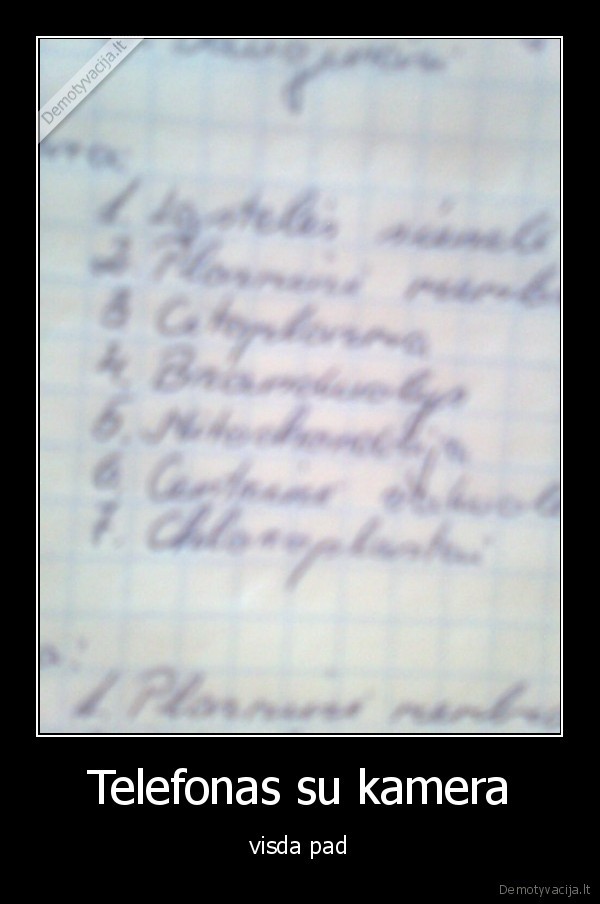 Demotyvacija.lt
1. Ląstelės sienelė
2. Plazminė
3. Citoplazma
4. Branduolys
5. Mitochondrija
6. Centrinė
7. Chloroplastai
1. Plazminė
Telefonas su kamera
visda pad
Demotyvacija.lt